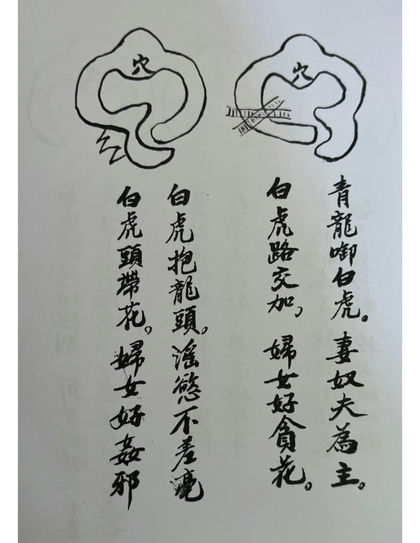 穴
青龍啣白虎。妻奴夫為主。
白虎路交加,婦女好貪花。
穴
白虎抱龍頭。滛慾不羞毫
白虎頭帶花,婦女好姦邪